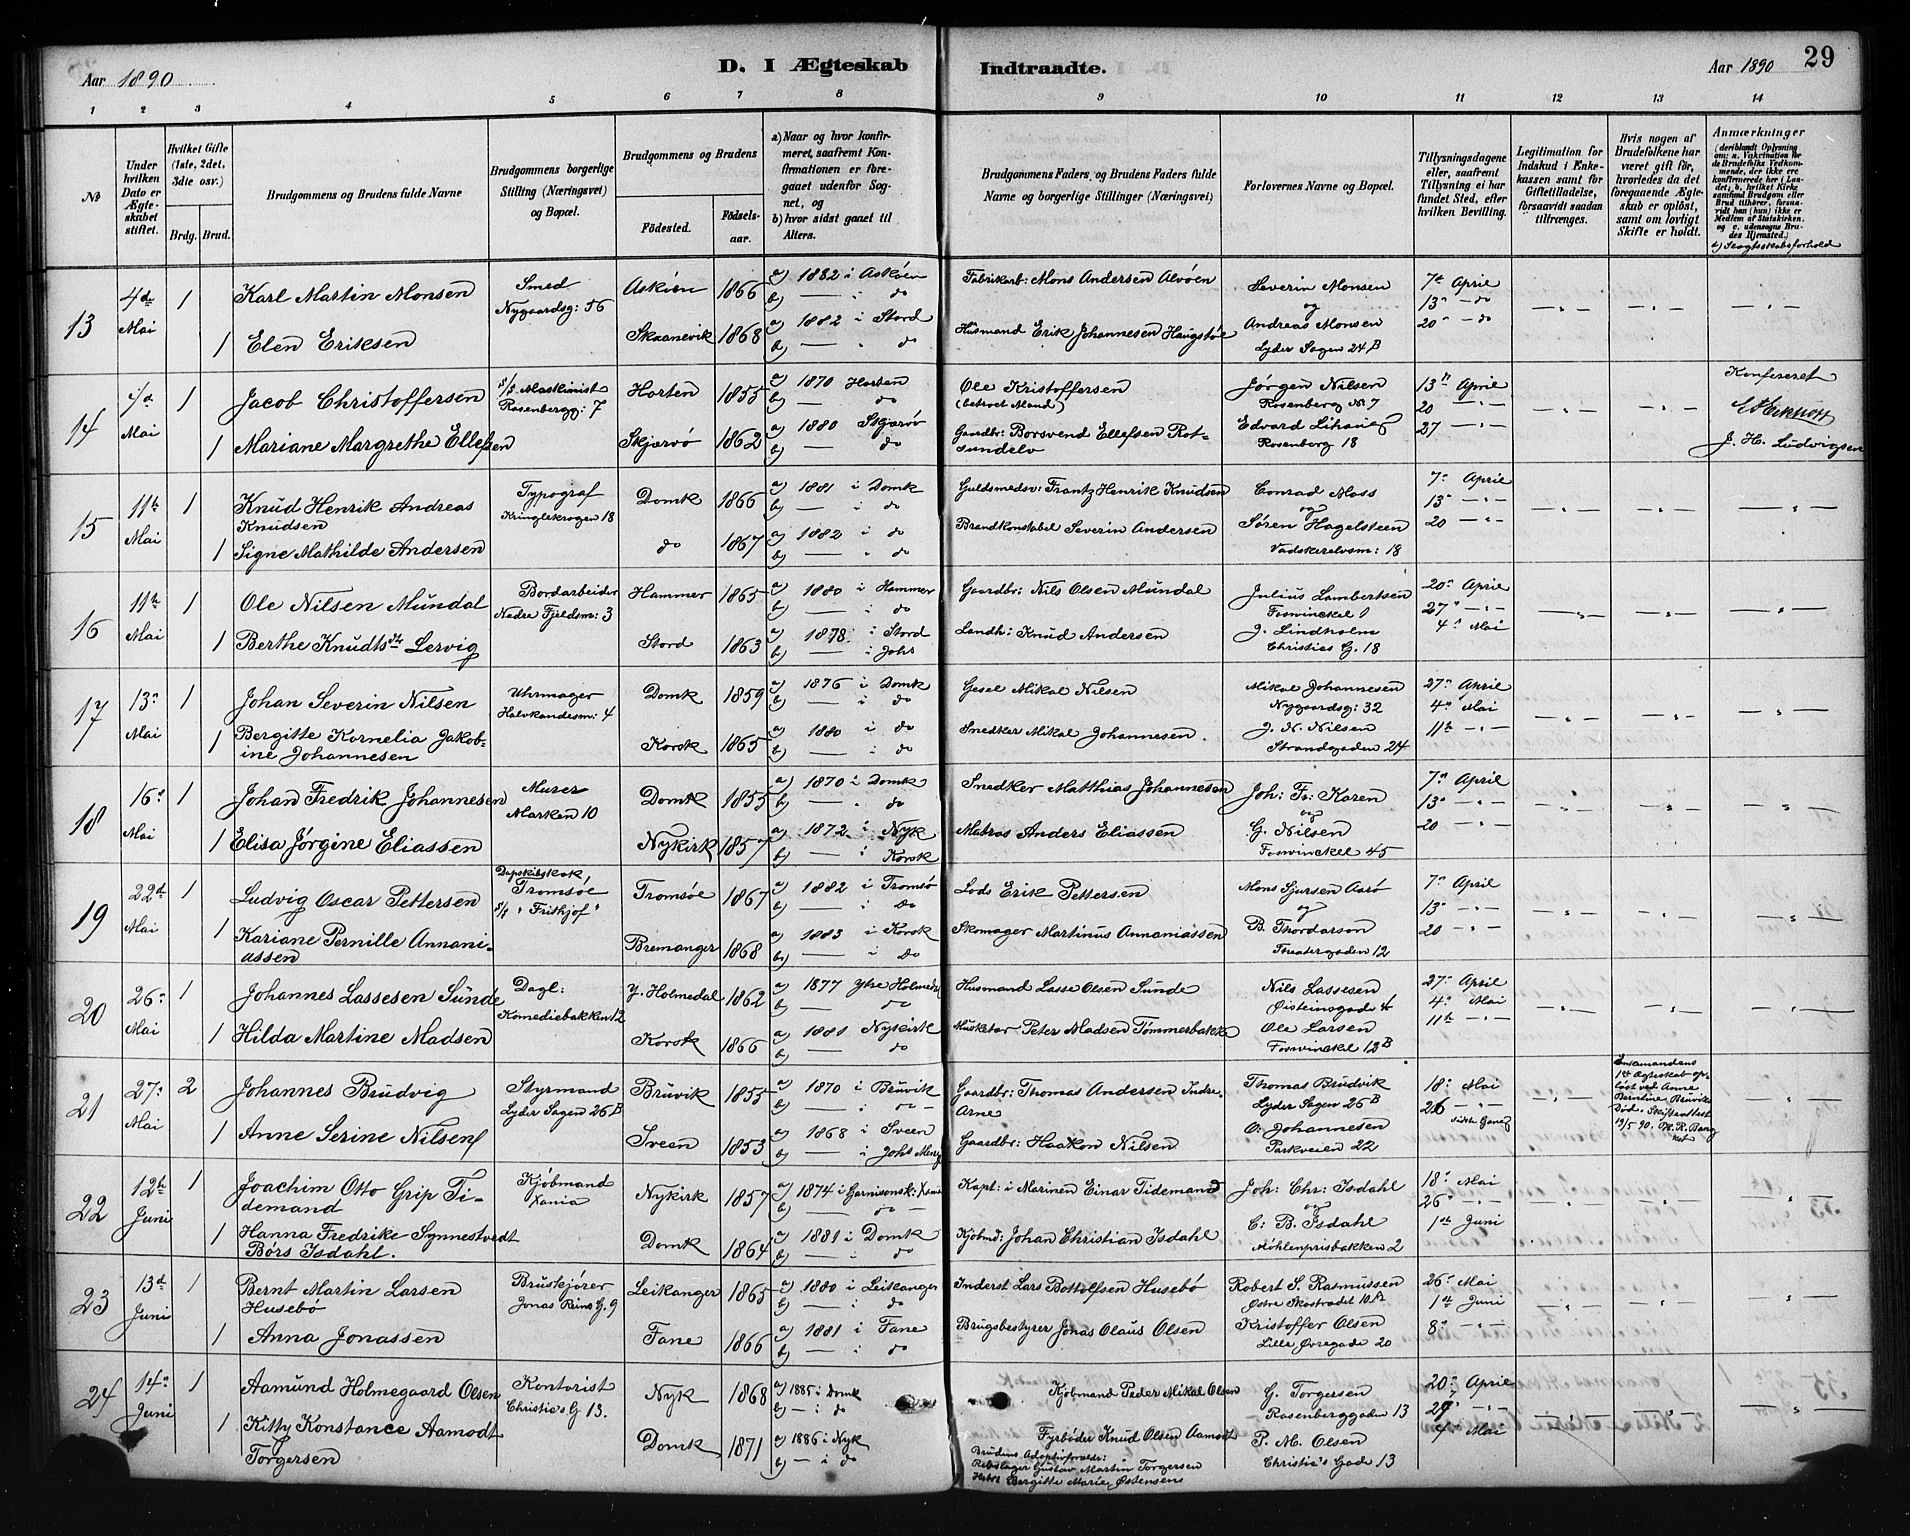 Aar 1890
D. I Ægteskab Indtraadte.
Aar 1890
29
1 2 3 4 5 6 7 8 9 10 11 12 13 14
№
Under hvilken Dato er Ægteskabet stiftet.
Hvilket Gifte (1ste, 2det, 3die osv.)
Brdg. Brud.
Brudgommens og Brudens fulde Navne
Brudgommens borgerlige Stilling (Næringsvei) og Bopæl.
Brudgommens og Brudens
Fødested.
Fødselsaar.
a) Naar og hvor konfirmeret, saafremt Konfirmationen er foregaaet udenfor Sognet, og
b) hvor sidst gaaet til Alters.
Brudgommens Faders og Brudens Faders fulde Navne og borgerlige Stillinger (Næringsvei)
Forlovernes Navne og Bopæl.
Tillysningsdagene eller, saafremt Tillysning ei har fundet Sted, efter hvilken Bevilling.
Legitimation for Indskud i Enkekassen samt for Giftetilladelse, forsaavidt saadan tiltrænges.
Hvis nogen af Brudefolkene har været gift før, hvorledes da det foregaaende Ægteskab er opløst, samt om lovligt Skifte er holdt.
Anmærkninger (deriblandt Oplysning om: a. Vakcination for de Brudefolks Vedkommende, der ikke ere konfirmerede her i Landet; b. hvilket Kirkesamfund Brudgom eller Brud tilhører, forsaavidt han (hun) ikke er Medlem af Statskirken, og c. udensogns Brudes Hjemsted.)
d) Slægtsskabsforhold
13 4de Mai 1 Karl Martin Monsen Smed Nygaardsg: 56 Askøen 1866 a) 1882 i Askøen b) — i do Fabrikarb: Mons Andersen Alvøen Severin Monsen og 7de April 13" — do
1 Elen Eriksen Skaanevik 1868 a) 1882 i Stord b) — i do Husmand Erik Johannesen Haugstøe Andreas Monsen Lyder Sagen 24 B 20" — do
14 Mai 1 Jacob Christoffersen S/S Maskinist Rosenbergg: 7 Horten 1855 a) 1870 Horten b) — do Ole Kristoffersen (betroet Mand) Jørgen Nilsen Rosenberg № 7 13" April 20 — " — Konfereret
1 Mariane Margrethe Ellefsen Skjærvö 1862 a) 1880 Skjærvø b) — do Gaardbr: Borsvend Ellefsen Rotsundelv Edvard Rosenberg 18 27 — " — J. H. Ludvigsen
15 11te Mai 1 Knud Henrik Andreas Knudsen Typograf Kringlekrogen 18 Domk 1866 a) 1881 i Domk b) — i do Guldsmedsv: Frantz Henrik Knudsen Conrad Moss og 7" April 13" — " —
1 Signe Mathilde Andersen do 1867 a) 1882 i do b) — " do Brandkonstabel Severin Andersen Søren Hagelsteen Vadskerelvsm: 18 20 — " —
16 11te Mai 1 Ole Nilsen Mundal Bordarbeider Nedre Fjeldsm: 3 Hammer 1865 a) 1880 i Hammer b) — " do Gaardbr: Nils Olsen Mundal Julius Lambertsen Fosvinckel 1 20" April 27" — " —
1 Berthe Knudtsdtr Lervig Stord 1863 a) 1878 i Stord b) — i Johs Landh: Knud Andersen J. Lindholm Christies G. 18 4" Mai
17 13" Mai 1 Johan Severin Nilsen Uhrmager Halvkandesm: 4 Domk 1859 a) 1876 i Domk b) — " do Gesel Mikal Nilsen Mikal Johannesen Nygaardsg: 32 27" April 4" Mai
1 Bergitte Kornelia Jakobine Johannesen Korsk 1865 a) 1880 i do b) — " do Snedker Mikal Johannesen. J. K. Nilsen Strandgaden 24 11te — " —
18 16" Mai 1 Johan Fredrik Johannesen Murer Marken 10 Domk 1855 a) 1870 i Domk b) — " do Snedker Matthias Johannesen Joh: Fr: Karen og 7" April 13" — " —
1 Elisa Jørgine Eliassen Nykirk 1857 a) 1872 i Nyk b) — i Korsk Matros Anders Eliassen G. Nilsen Fosvinckel 45 20 — " —
19 22d Mai 1 Ludvig Oscar Pettersen Dapskibskok Tromsøe S/S "Frithjof" Tromsøe 1867 a) 1882 i Tromsø b) — " Do Lods Erik Pettersen Mons Sjursen Aarø og 7" April 13" — " —
1 Kariane Pernille Annaniassen Bremanger 1868 a) 1883 i Korsk b) — i Do Skomager Martinus Annaniassen B. Thordarson Theatergaden 12 20 — " —
20 26" Mai 1 Johannes Lassesen Sunde Dagl: Komediebakken 12 Y. Holmedal 1862 a) 1877 Ytre Holmedal b) — do Husmand Lasse Olsen Sunde Nils Lassesen Øisteinsgade 4 27" April 4" Mai
1 Hilda Martine Madsen Korsk 1866 a) 1881 Nykirk b) — do Musketer Peter Madsen Tømmerbakke Ole Larsen Fosvinckel 12B 11te — " —
21 27" Mai 2 Johannes Brudvig Styrmand Lyder Sagen 26 B Bruvik 1855 a) 1870 i Bruvik b) — " do — Gaardbr: Thomas Andersen Indre-Arne Thomas Brudvik Lyder Sagen 26 B 18" Mai 26 — " — sidste Gang Enkemandens 1ste Ægteskab opløst ved Anne Berntine Bruviks Død. Skifteattest 19/5 90.
1 Anne Serine Nilsen Sveen 1853 a) 1868 i Sveen b) — i Johs Meng Gaardbr: Haakon Nilsen O: Johannesen Parkveien 22
22 12te Juni 1 Joachim Otto Grip Tidemand Kjøbmand Xania Nykirk 1857 a) 1874 i Garnisonsk: Xania b) — " do — Kapt: i Marinen Einar Tidemand Joh: Chr: Isdahl og 18" Mai 26" — " —
1 Hanna Fredrike Synnestvedt Børs Isdahl. Domk 1864 a) 1881 i Domk b) — " do Kjøbmd: Johan Christian Isdahl C: B. Isdahl Møhlenprisbakken 2 1ste Juni
23 13d Juni 1 Bernt Martin Larsen Husebö Bruskjører Jonas Reins G. 9 Leikanger 1865 a) 1880 i Leikanger b) — i do Inderst Lars Bottolfsen Husebö Robert S. Rasmussen Østre Skostrædet 10 26" Mai 1ste Juni
1 Anna Jonassen Fane 1866 a) 1881 i Fane b) — " do Brugsbestyrer Jonas Olaus Olsen Kristoffer Olsen Lille Øvregade 20 8" — " —
24 14" Juni 1 Aamund Holmegaard Olsen Kontorist Christie's G 13. Nyk 1868 a) 1885 i Domk b) — i do Kjøbmand Peder Mikal Olsen G. Torgersen Rosenberggaden 13 20" April 27 — " —
1 Kitty Konstance Aamodt Torgersen Domk 1871 a) 1886 i Nyk b) — i do Fyrbøder Knud Olsen Aamodt Brudens Adoptivforældre: Rebslager Gustav Martin Torgersen Hustr Bergitte Marie Østensens P. M. Olsen Christie's Gade 13 4de Mai